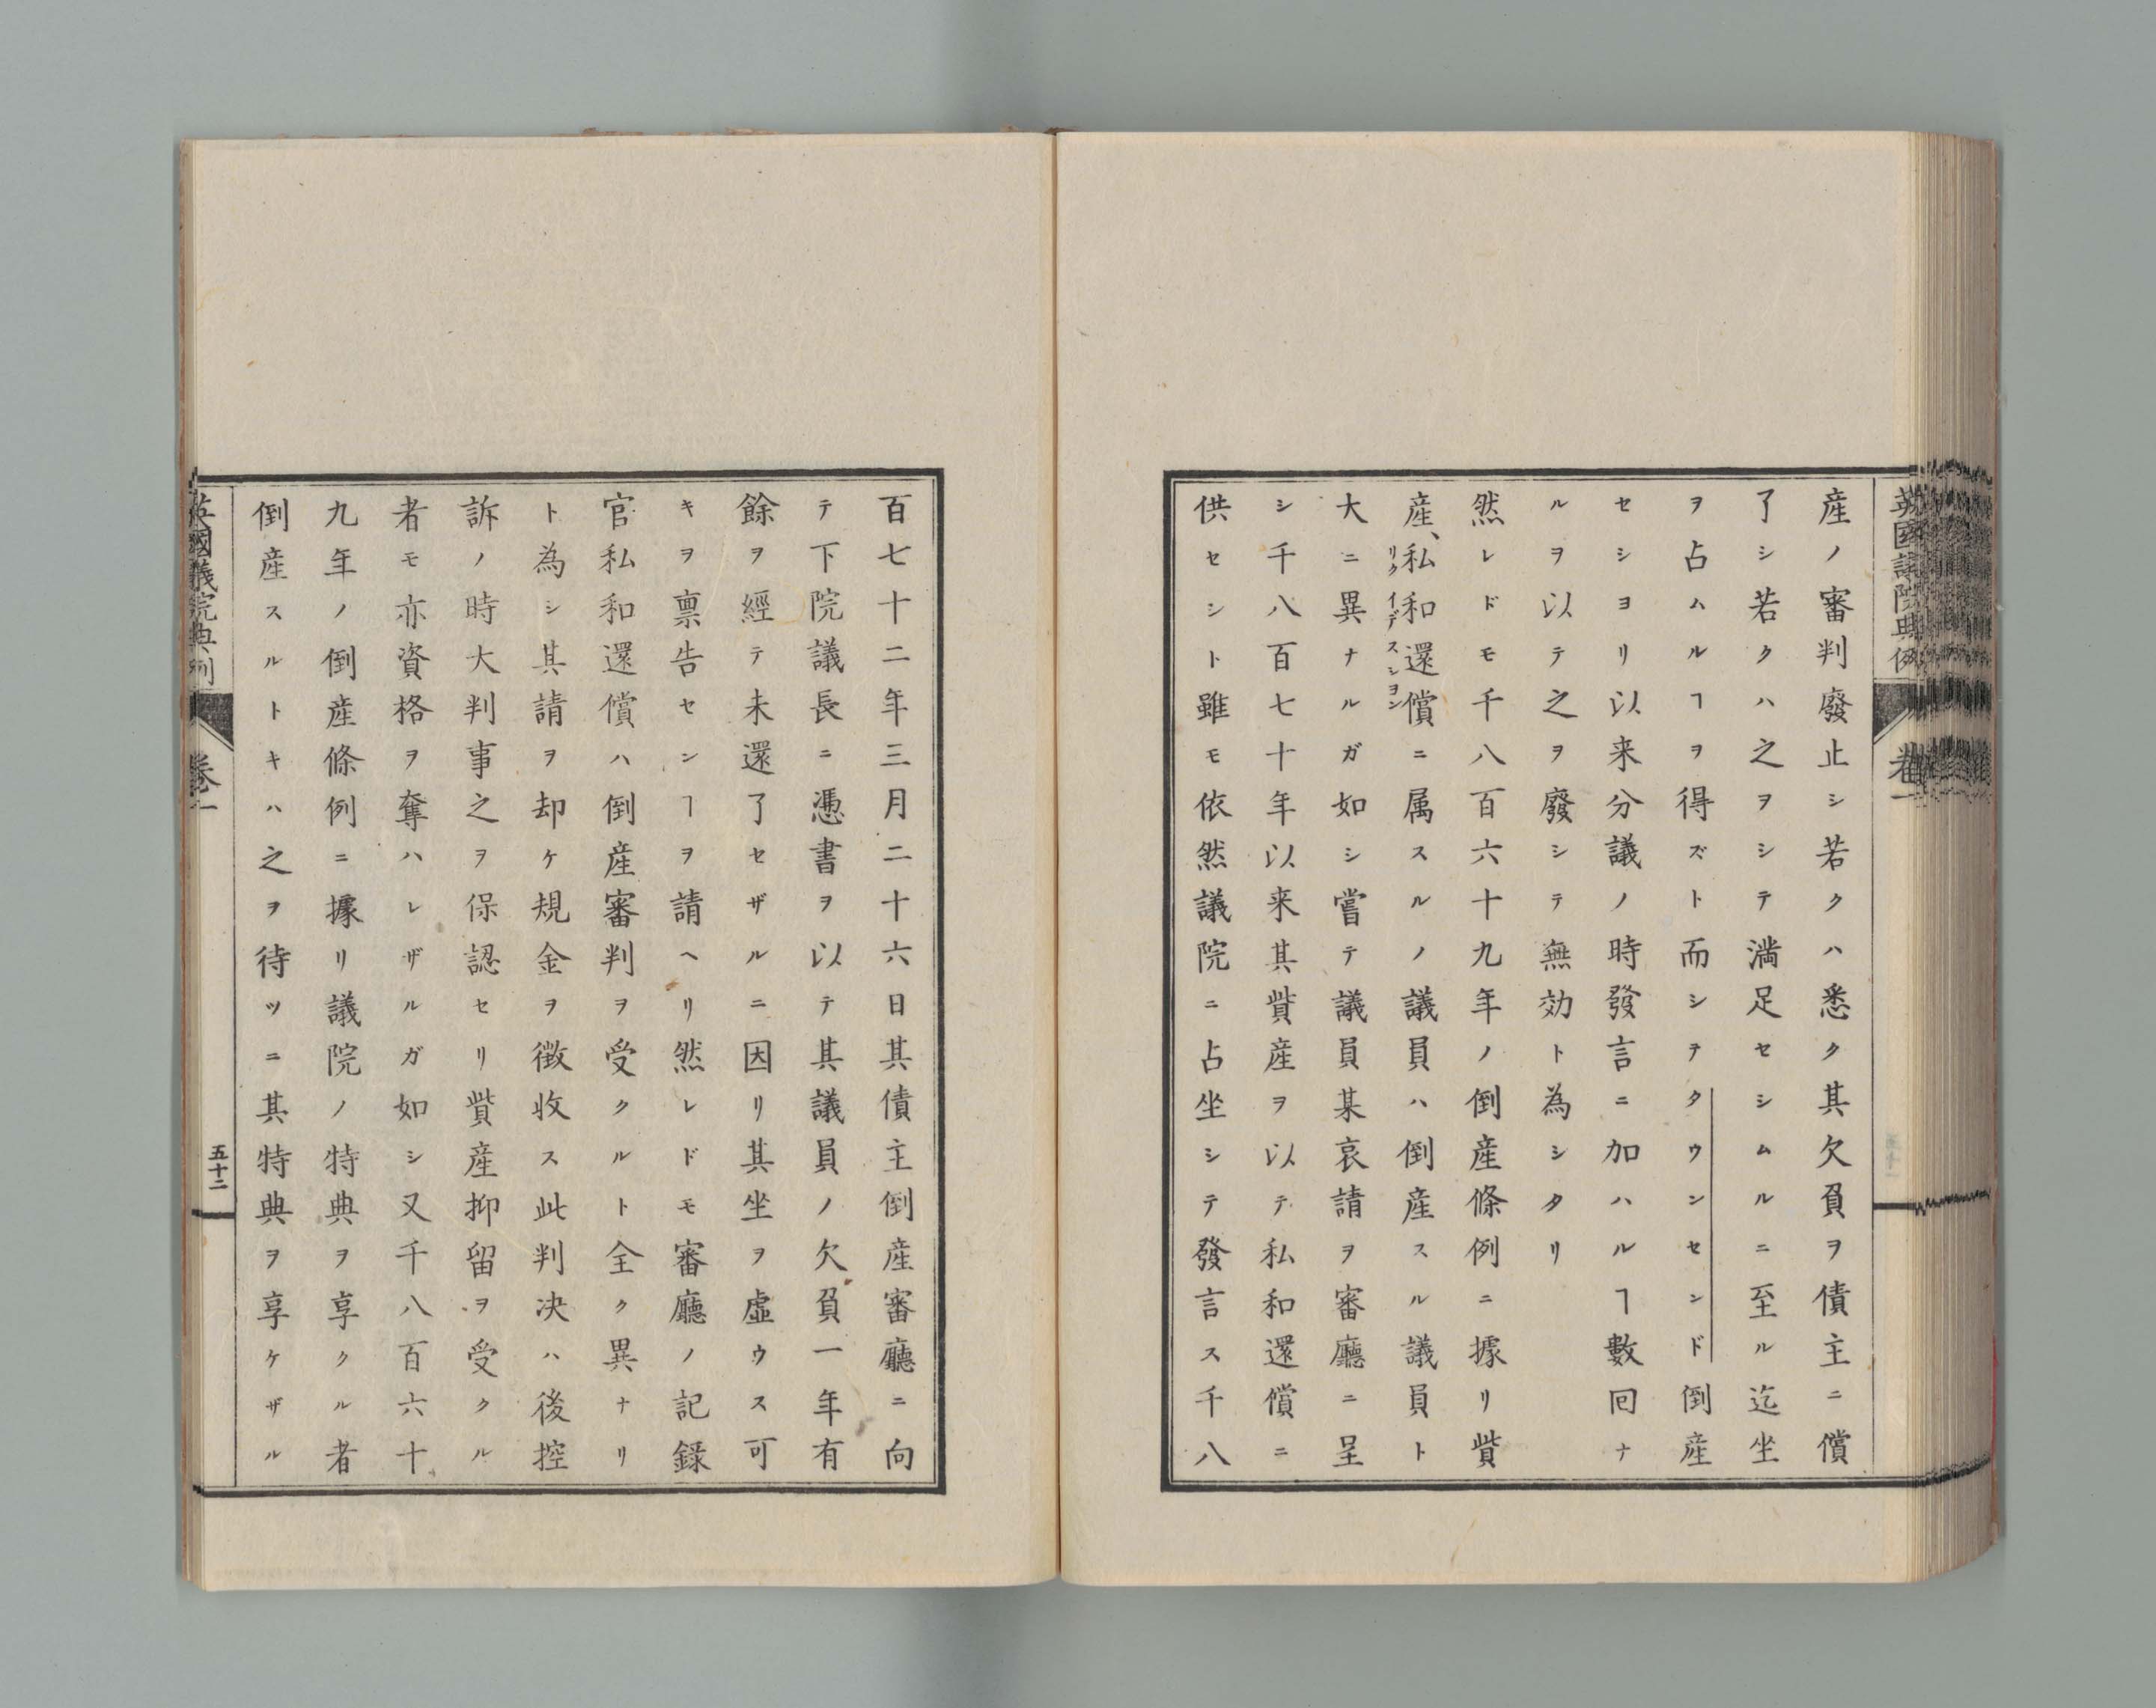 英國議院典例
卷一
産ノ審判廢止シ若クハ悉ク其欠負ヲ債主ニ償
了シ若クハ之ヲシテ満足セシムルニ至ル迄坐
ヲ占ハルヿヲ得ズト而シテタウンセンド倒産
セシヨリ以来分議ノ時發言ニ加ハルヿ數回ナ
ルヲ以テ之ヲ廢シテ無効ト為シタリ
然レドモ千八百六十九年ノ倒産條例ニ據リ貲
産、私和還償ニ属スルノ議員ハ倒産スル議員ト
リクイデスシヨン
大ニ異ナルガ如シ嘗テ議員某哀請ヲ審廳ニ呈
シ千八百七十年以来其貲産ヲ以テ私和還償ニ
供セシト雖モ依然議院ニ占坐シテ發言ス千八
百七十二年三月二十六日其債主倒産審廳ニ向
テ下院議長ニ憑書ヲ以テ其議員ノ欠負一年有
餘ヲ經テ未還了セザルニ因リ其坐ヲ虛ウス可
キヲ禀告センヿヲ請ヘリ然レドモ審廳ノ記録
官私和還償ハ倒産審判ヲ受クルト全ク異ナリ
ト為シ其請ヲ却ケ規金ヲ徴收ス此判决ハ後控
訴ノ時大判事之ヲ保認セリ貲産抑留ヲ受クル
者モ亦資格ヲ奪ハレザルガ如シ又千八百六十
九年ノ倒産條例ニ據リ議院ノ特典ヲ享クル者
倒産スルトキハ之ヲ待ツニ其特典ヲ享ケザル
英國議院典例
卷一
五十二